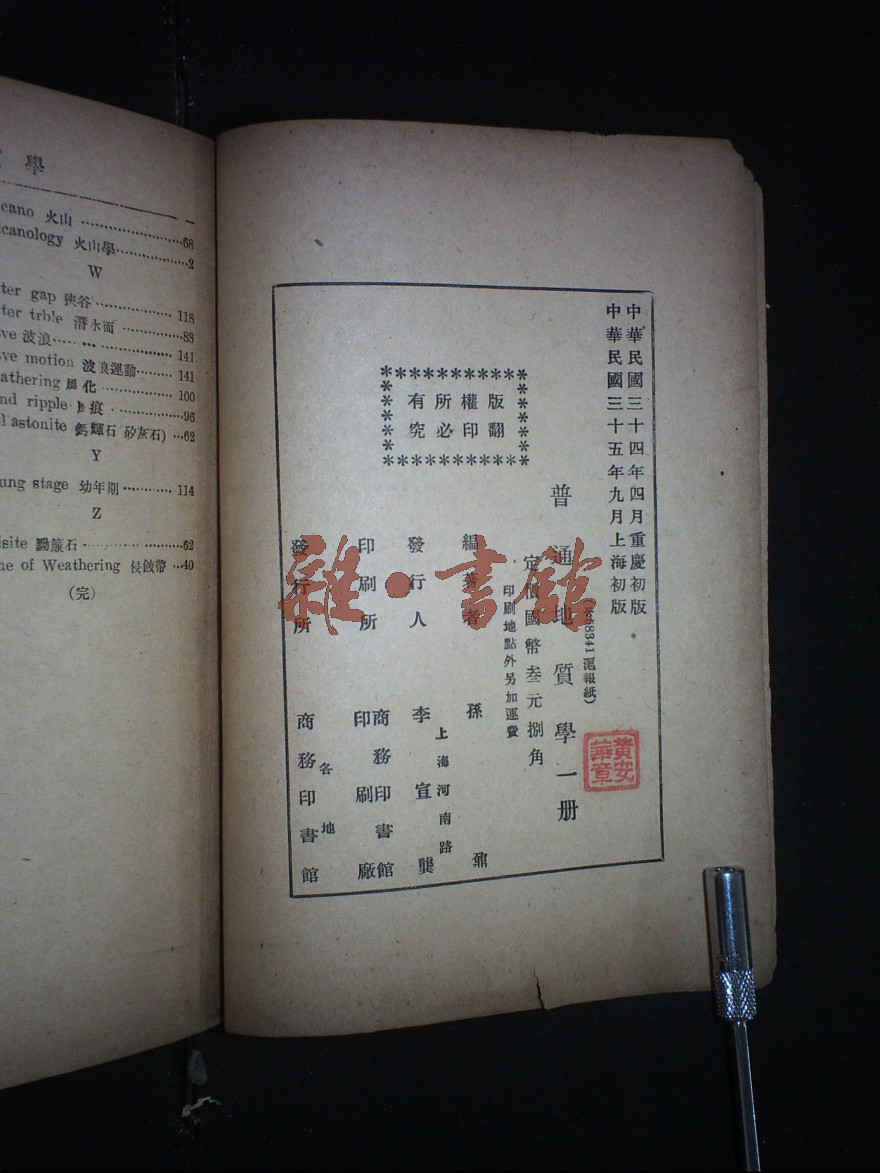 學
cano 火山 ………………68
canology 火山學………………2
W
ter gap 狹谷……………… 118
ter trble 潛水面 ………………88
ve 波浪……………… 141
ve motion 波浪運動……… 141
athering 風化 ……………… 100
nd ripple 痕 ………………96
l astonite 鈣輝石 矽灰石) …62
Y
ung stage 幼年期………… 114
Z
isite 黝簾石………………62
ne of Weathering 侵蝕帶 …40
(完)
中華民國三十四年四月重慶初版
中華民國三十五年九月上海初版
版權所有
翻印必究
(68341滬報紙)
普通地質學一册
定價國幣叁元捌角
印刷地點外另加運費
編著者 孫鼐
發行人 李宣龔
上海河南路
印刷所 商務印書館
印刷廠
發行所 商務印書館
各地
黃安
華章
雜·書館